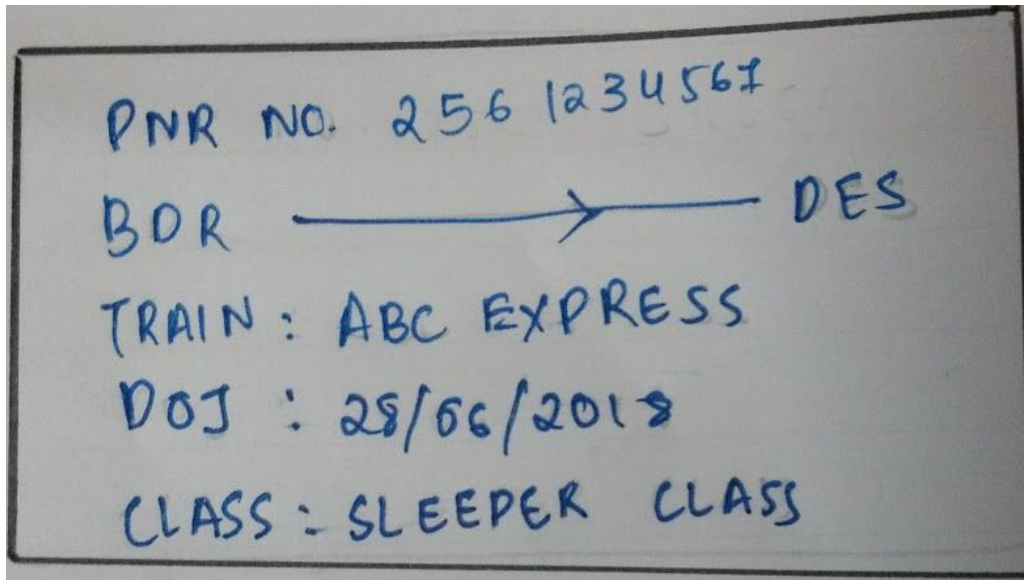 PNR NO. 256 1234567
BDR DES
TRAIN: ABC EXPRESS
DOJ : 28/06/2018
CLASS: SLEEPER CLASS